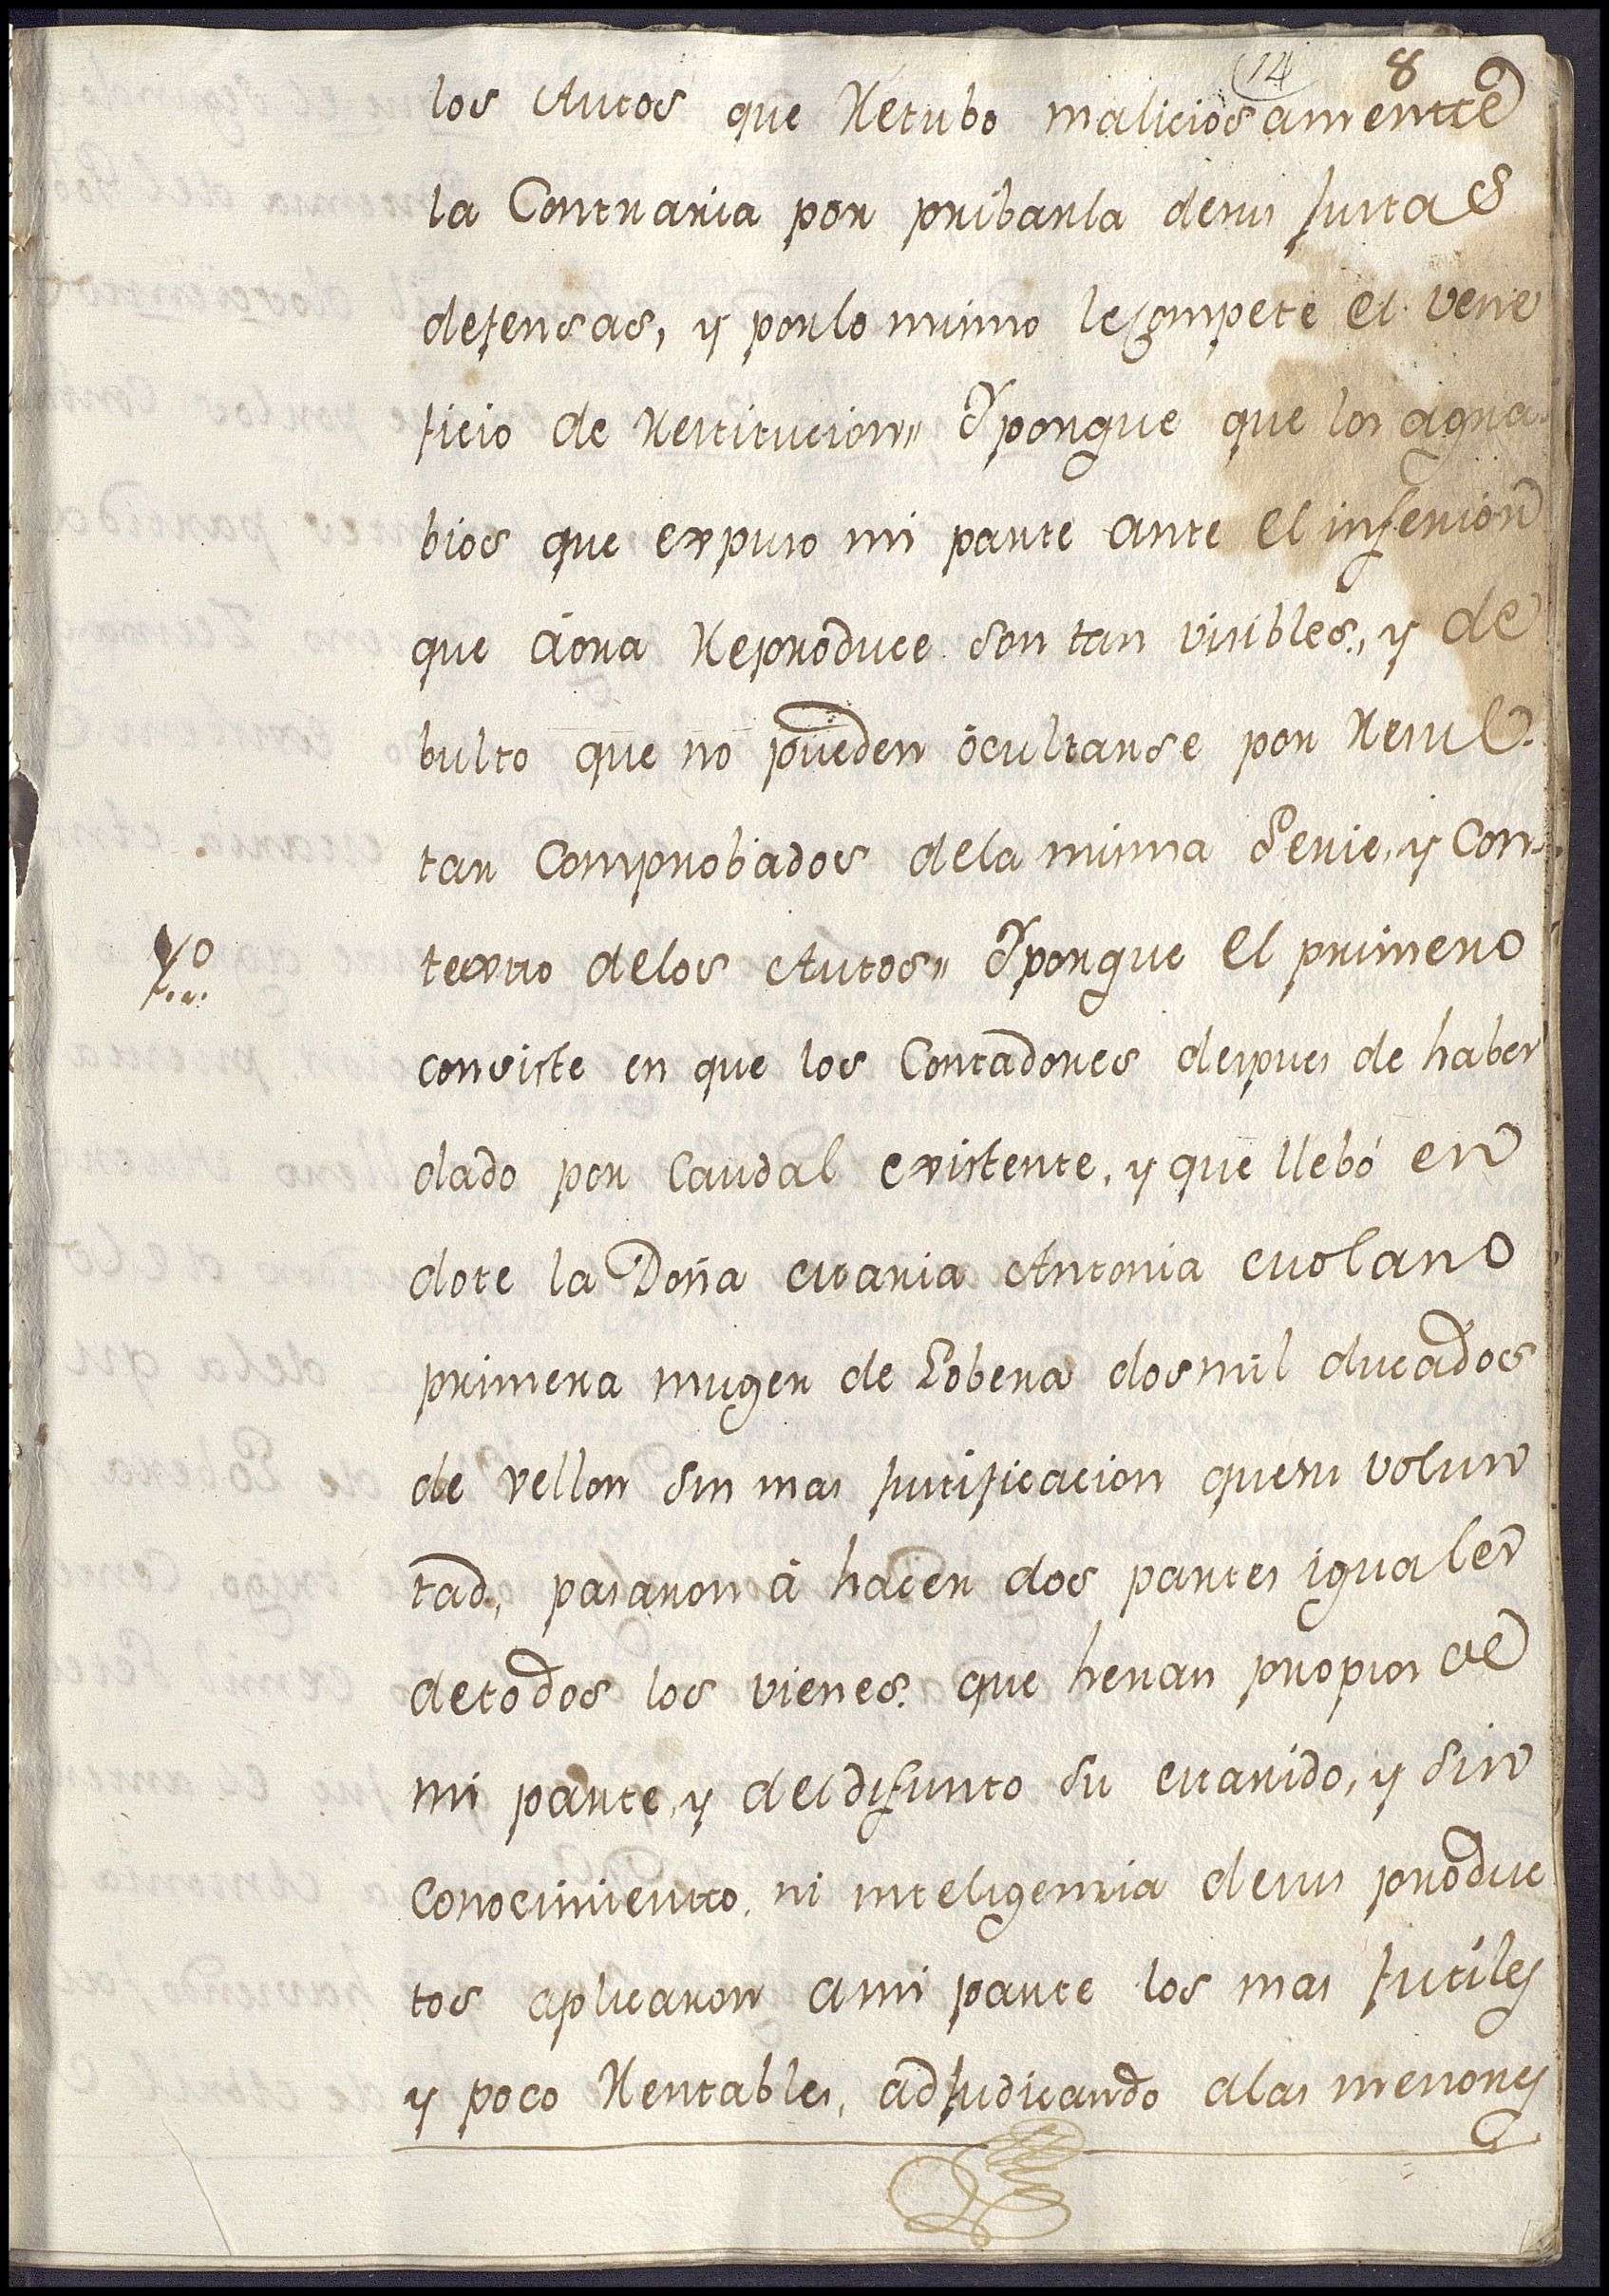 14 8
los Autos que Retubo maliciosamentte
la Contraria por pribarla desus Justas
defensas, y porlo mismo lecompete el vene
ficio de Restitucion" Yporque que los agra
bios que expuso mi parte ante el inferior
que áora Reproduce son tan visibles, y de
bulto que no pueden ocultarse por Resul
tar Comprobados dela misma Serie, y Con-
texto delos Autos" Yporque el primero
1º
consiste en que los Contadores despues de haber
dado por Caudal existente, y que llebó en
dote la Doña Maria Antonia Molano
primera muger de Lobera dosmil ducados
de vellon sin mas Justificacion quesu volun
tad, pasaron á hacer dos partes iguales
detodos los vienes que heran propios de
mi parte, y del difunto su Marido, y sin
Conocimientto, ni inteligencia desus produc
tos aplicaron ami parte los mas futiles
y poco Rentables, adJudicando alas menores